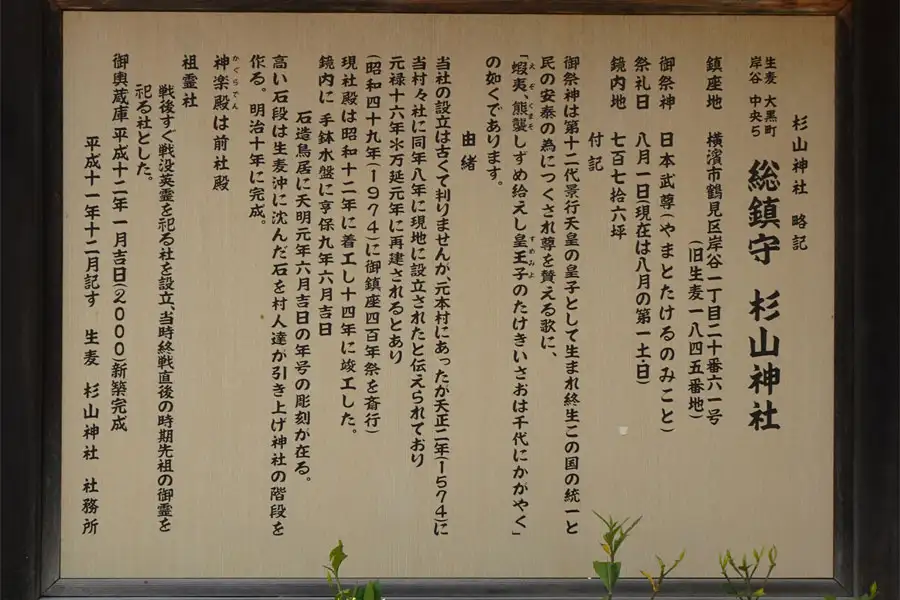 杉山神社 略記
生麦 大黒町
岸谷 中央5
総鎮守 杉山神社
鎮座地 横濱市鶴見区岸谷一丁目二十番六一号
(旧生麦一八四五番地)
御祭神 日本武尊(やまとたけるのみこと)
祭礼日 八月一日(現在は八月の第一土・日)
鏡内地 七百七拾六坪
付記
御祭神は第十二代景行天皇の皇子として生まれ終生この国の統一と
民の安泰の為につくされ尊を賛える歌に、
「蝦夷、熊襲しずめ給えし皇王子のたけきいさおは千代にかがやく」
の如くであります。
由緒
当社の設立は古くて判りませんが、元本村にあったが天正二年(1574)に
当村々社に同年八年に現地に設立されたと伝えられており
元禄十六年*万延元年に再建されるとあり
(昭和四十九年(1974)に御鎮座四百年祭を斎行)
現社殿は昭和十二年に着工し十四年に竣工した。
鏡内に 手鉢水盤に亨保九年六月吉日
石造鳥居に天明元年六月吉日の年号の彫刻が在る。
高い石段は生麦沖に沈んだ石を村人達が引き上げ神社の階段を
作る。明治十年に完成。
神楽殿は前社殿
祖霊社
戦後すぐ戦没英霊を祀る社を設立、当時終戦直後の時期先祖の御霊を
祀る社とした。
御輿蔵庫 平成十二年一月吉日(2000)新築完成
平成十一年十二月記す 生麦 杉山神社 社務所